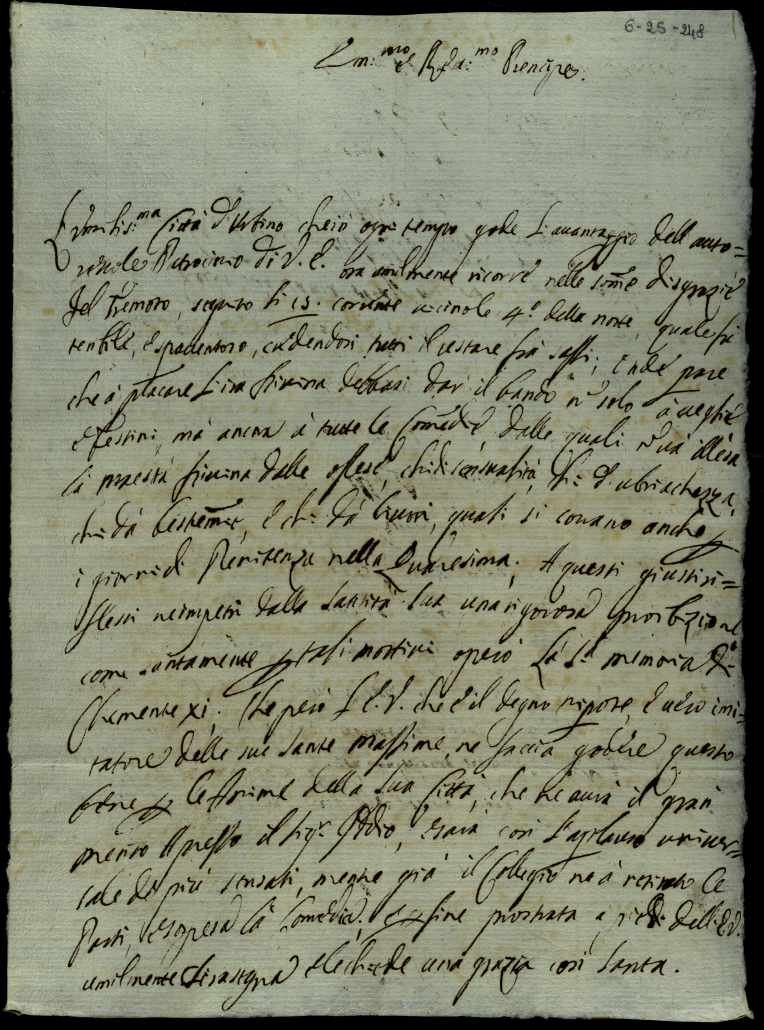 6-25-248
Em:mo e Re:mo Prencipe.
Città d'Urbino che in ogni tempo gode l'avantaggio dell'auto=
revole Patrocinio di V. E. ora umilmente ricorre nelle disgrazie
del Tremoto, seguito li 15. corrente vicino le 4.e della notte, quale fù
teribile, e spaventoso, credendosi tutti il restare frà sassi; Onde pare
che à placare l'ira Divina debbasi dar il bando nò solo à veglie
e festini, mà ancora à tutte le Comedie, dalle quali nò và illesa
la Maestà Divina dalle offese, chi di sensualità, chi d'ubriachezza,
chi dà bestemie, e chi dà livori, quali si covano anche p
i giorni di Penitenza nella Quaresima. A questi giusti ri=
flessi ne impetri dalla Santità Sua una rigorosa proibizione
come santamente p tali motivi operò la S.a memoria di
Clemente XI. Che però l'E.V. che è il degno nipote, e vero imi=
tatore delle sue sante massime, ne faccia godere questo
bene p le Anime della Sua Città, che ne avrà il gran
merito appresso il Sig.r Iddio, e sarà con l'aplauso univer=
sale de più sensati, mentre già il Collegio ne à retirato le
Parti, e sospesa la Comedia, e p fine prostrata a piedi dell'E.V.
umilmente si rasegna e le chiede una grazia così Santa.